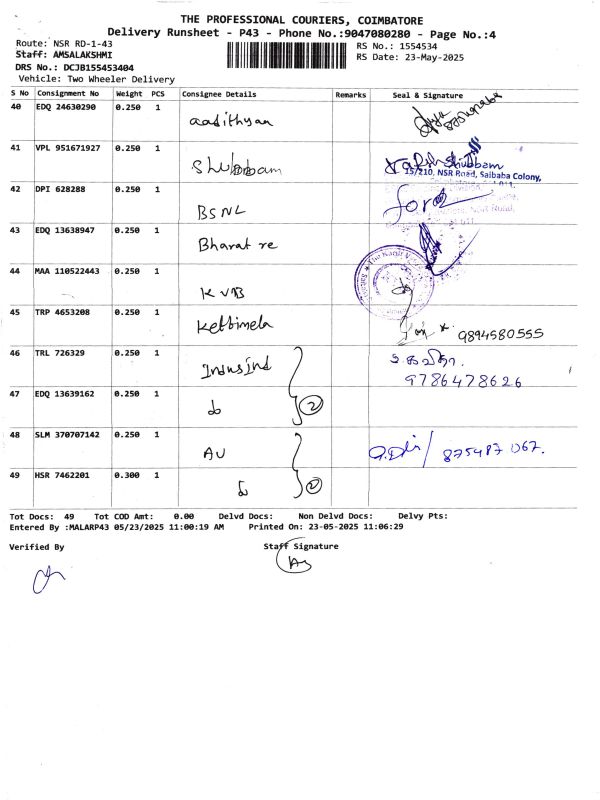 THE PROFESSIONAL COURIERS, COIMBATORE
Delivery Runsheet - P43 - Phone No.:9047080280 - Page No.:4
Route: NSR RD-1-43
Staff: AMSALAKSHMI
DRS No.: DCJB155453404
Vehicle: Two Wheeler Delivery
RS No.: 1554534
RS Date: 23-May-2025
S No Consignment No Weight PCS Consignee Details Remarks Seal & Signature
40 EDQ 24630290 0.250 1 aadithyan
41 VPL 951671927 0.250 1 Shubbam Shubbam
15/210, NSR Road, Saibaba Colony,
42 DPI 628288 0.250 1 BSNL for
43 EDQ 13638947 0.250 1 Bharat re
44 MAA 110522443 0.250 1 KVB
45 TRP 4653208 0.250 1 Kettimela 9894580555
46 TRL 726329 0.250 1 IndusInd
9786478626
47 EDQ 13639162 0.250 1 2
48 SLM 370707142 0.250 1 AU
49 HSR 7462201 0.300 1 2
Tot Docs: 49 Tot COD Amt: 0.00 Delvd Docs: Non Delvd Docs: Delvy Pts:
Entered By :MALARP43 05/23/2025 11:00:19 AM Printed On: 23-05-2025 11:06:29
Verified By Staff Signature